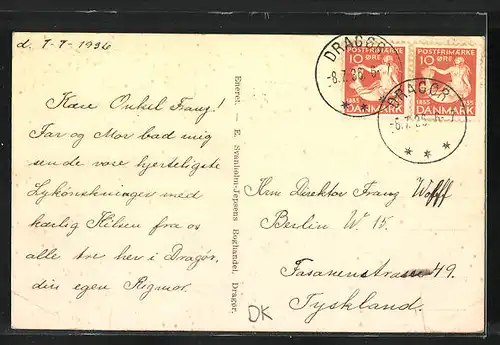 d. 7-7-1936
Kære Onkel Franz!
Far og Mor bad mig
sende vore hjerteligste
Lykønskninger med
kærlig Hilsen fra os
alle tre her i Dragør.
din egen Rigmor.
Eneret. – E. Svanholm-Jepsens Boghandel, Dragør.
DK
DRAGØR
-8.7.36. 6-
* * *
DRAGØR
* * *
POSTFRIMÆRKE
10 ØRE
1835 1935
DANMARK
POSTFRIMÆRKE
10 ØRE
1835 1935
DANMARK
Herrn Direktor Franz Wolff
Berlin W. 15.
Fasanenstrasse 49.
Tyskland.